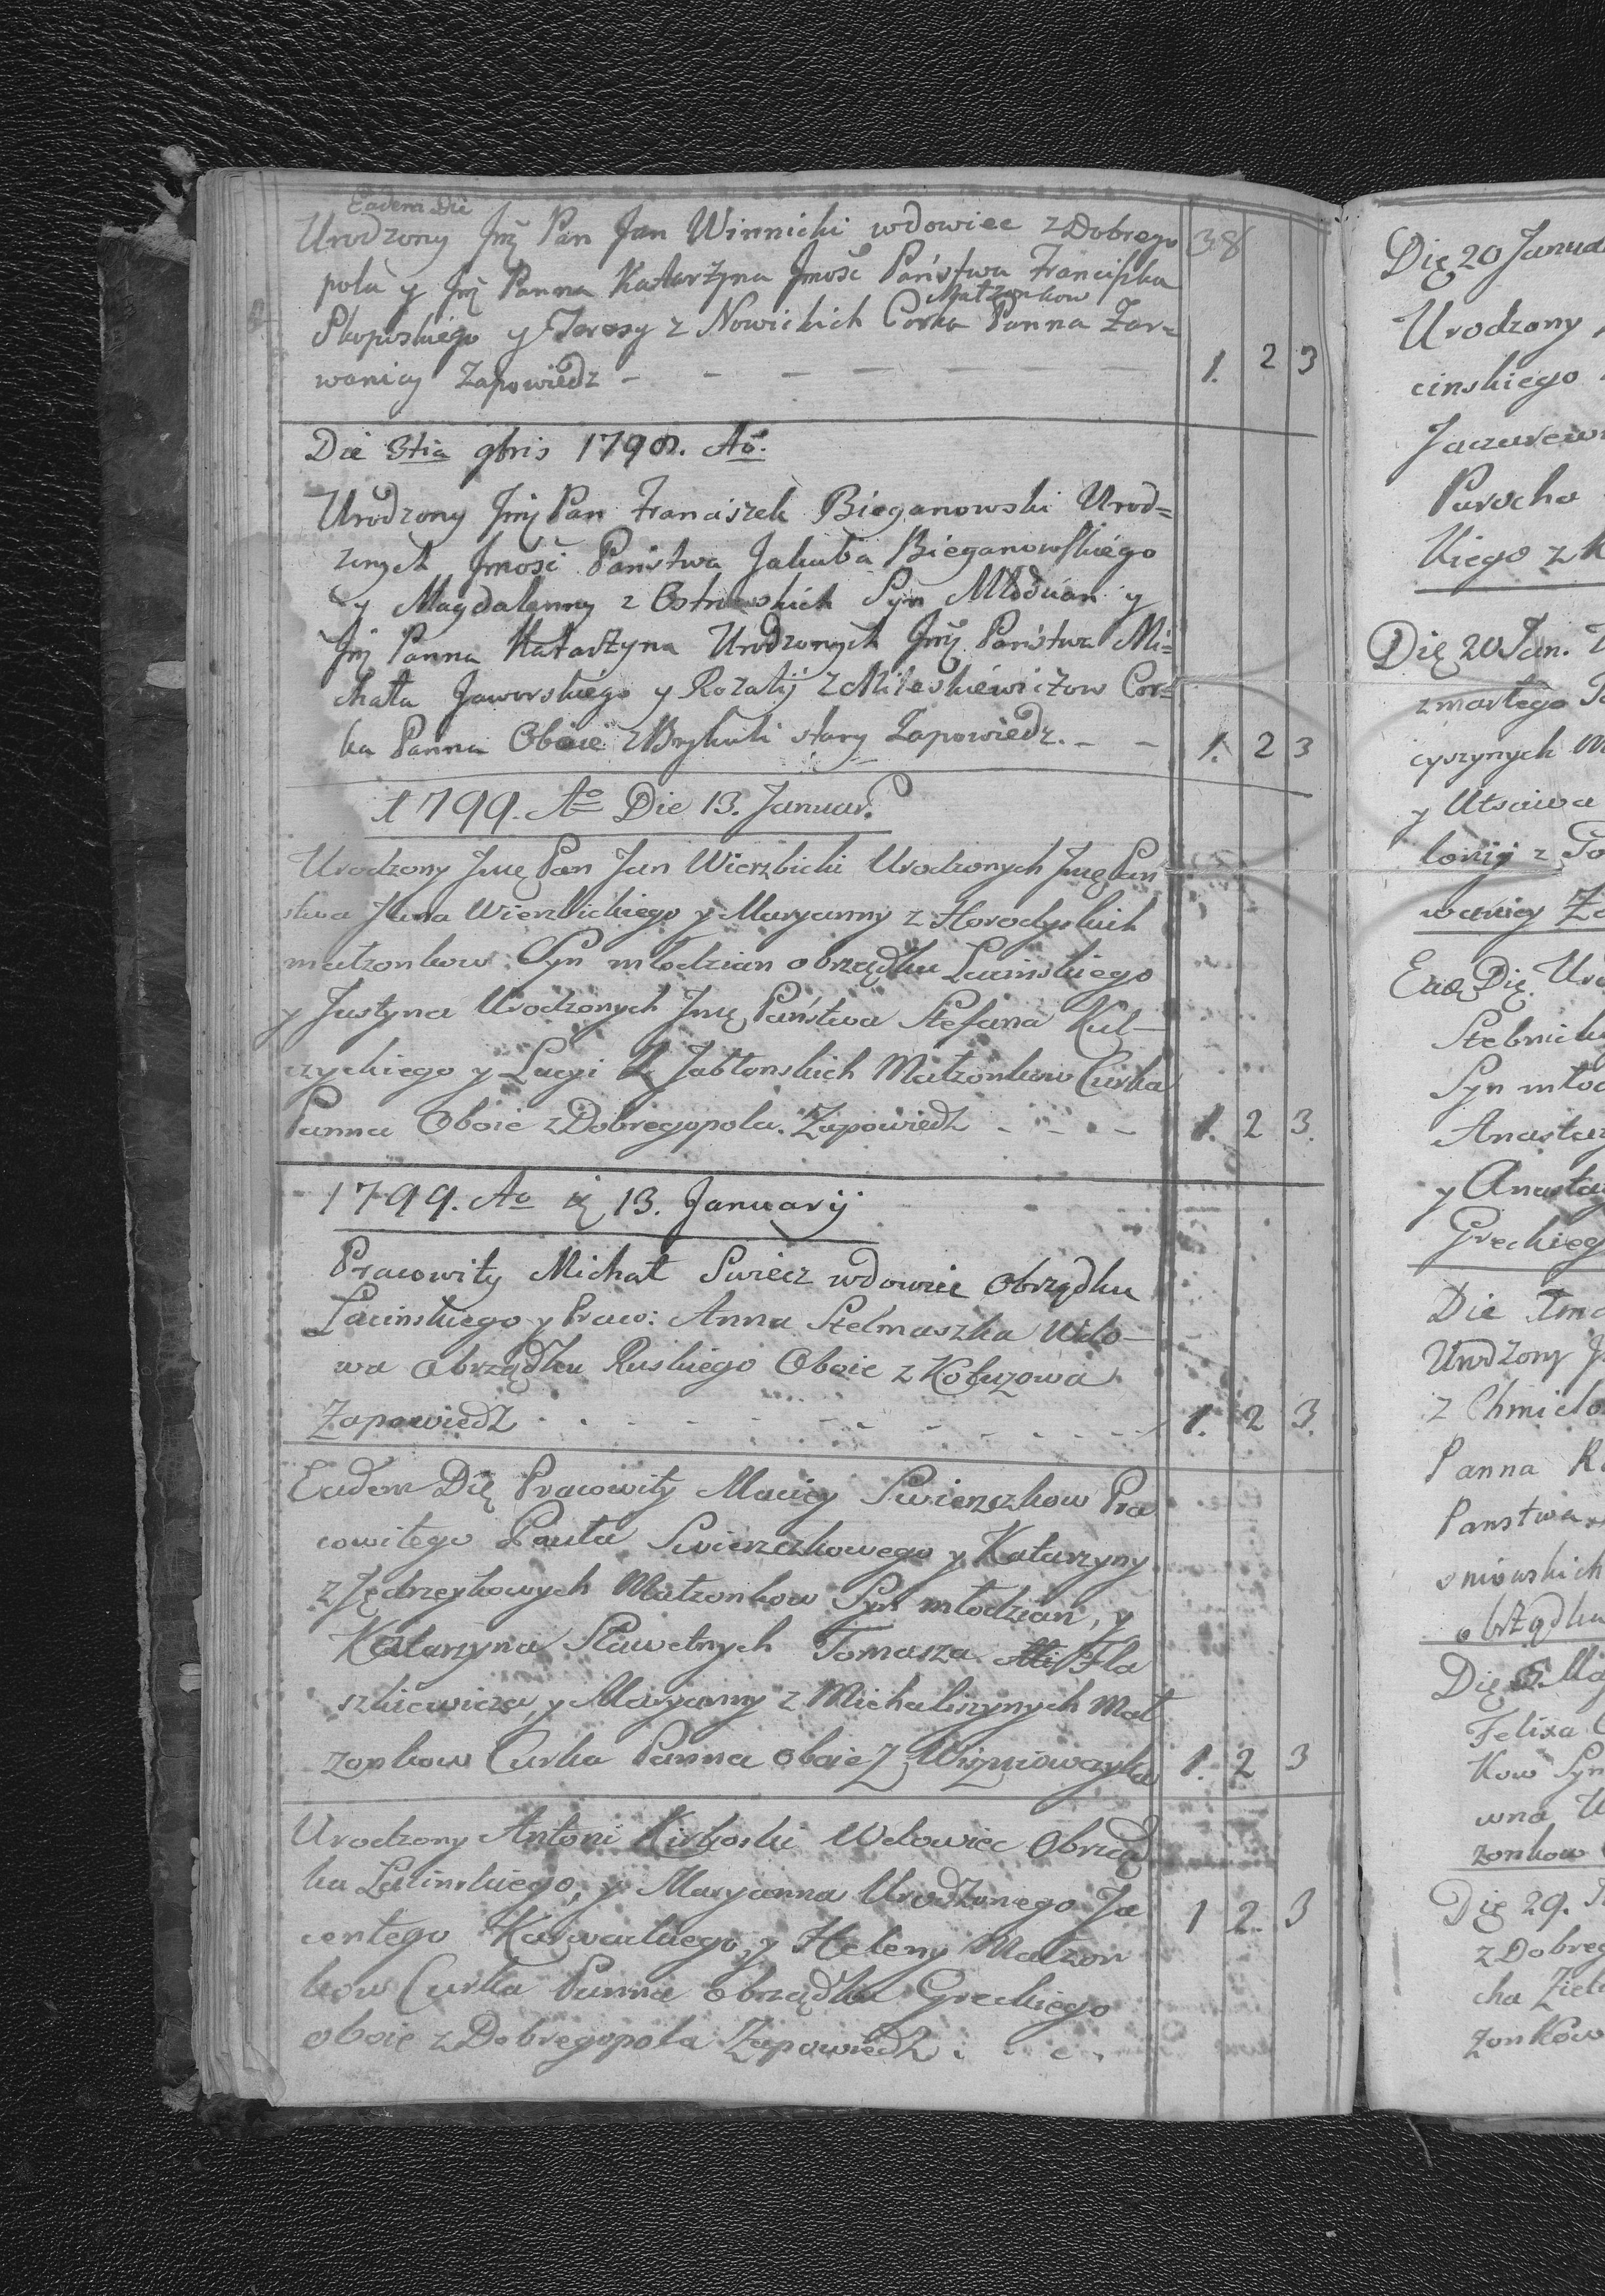 Eadem Die
Urodzony Jmć Pan Jan Winnicki wdowiec z Dobrego 38
pola y Jmć Panna Katarzyna Jmość Państwa Franciszka
Małżonkow
Skoposkiego y Teresy z Nowickich Corka Panna Zar=
wanicy Zapowiedz - - - - - - 1. 2 3
Die 3tia 9bris 1798. Ao.
Urodzony Jmć Pan Franciszek Bieganowski Urod=
zonych Jmość Państwa Jakuba Bieganowskiego
y Magdalenny z Ostrowskich Syn Młodzian y
Jmć Panna Katarzyna Urodzonych Jmć Państwa Mi=
chała Jaworskiego y Rozalij z Mileskiewiczow Cor=
ka Panna Oboie z Brykuli stary Zapowiedz. - - 1. 2 3
1799. Ao Die 13. Januar.
Urodzony Jmę Pan Jan Wierzbicki Urodzonych Jmę Pań
stwa Jana Wierzbickiego y Maryanny z Horodyskich
małzonkow Syn młodzian obrządku Łacinskiego
y Justyna Urodzonych Jmę Państwa Stefana Kul-
czyckiego y Lucyi z Jabłonskich Małzonkow Curka
Panna Oboie z Dobregopola. Zapowiedz - - - - 1. 2 3.
1799. Ao 13. Januarij
Pracowity Michał Swiecz wdowiec Obrządku
Łacinskiego y Praco: Anna Stelmaszka Wdo-
wa obrządku Ruskiego Oboie z Kobuzowa
Zapowiedz - - - - - - - - - 1. 2 3.
Eadem Dię Pracowity Maciey Swierszkow Pra
cowitego Pawła Swierszkowego y Katarzyny
z Jędrzeykowych Małzonkow Syn młodzian, y
Katarzyna Sławetnych Tomasza Fla
szkiewicza, y Maryanny z Michaliszynych Mał
zonkow Curka Panna oboie z Wiszniowczyka 1. 2 3
Urodzony Antoni Wdowiec Obrząd
ku Łacinskiego, y Maryanna Urodzonego Ja 1 2. 3
centego y Heleny Małzon
kow Curka Panna obrządku Greckiego
oboie z Dobregopola Zapowiedz. - - -
Dię 20
Urodzony
cinskiego
Parocha
Kiego z
Dię 20 Jan.
zmarłego
z
y
Dię
Syn
y
Greckieg
Die
Urodzony
z
Panna
Panstwa
Dię
Felixa
Kow Syn
wna
zonkow
Dię 29.
z Dobreg
cha
zonkow